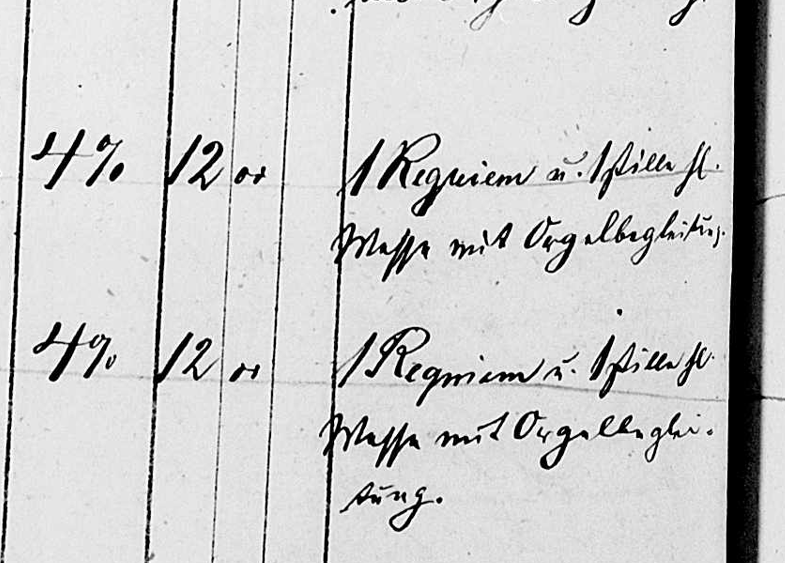 4% 12 00 1 Requiem u. 1 stille hl.
Messe mit Orgelbegleitung.
4% 12 00 1 Requiem u. 1 stille hl.
Messe mit Orgelbeglei-
tung.